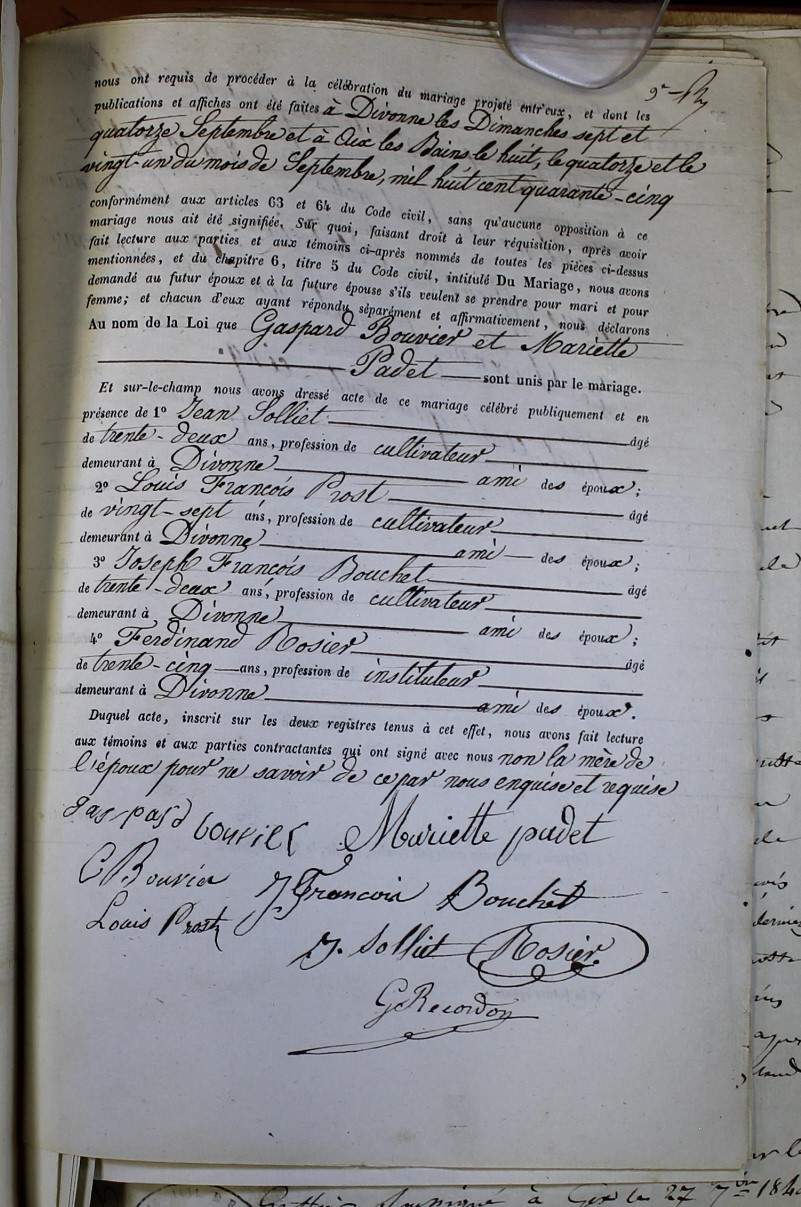 nous ont requis de procéder à la célébration du mariage projeté entr'eux, et dont les
publications et affiches ont été faites à Divonne les Dimanches sept et
quatorze Septembre et à Aix les Bains le huit, le quatorze et le
vingt-un du mois de Septembre, mil huit cent quarante-cinq
conformément aux articles 63 et 64 du Code civil, sans qu'aucune opposition à ce
mariage nous ait été signifiée. Sur quoi, faisant droit à leur réquisition, après avoir
fait lecture aux parties et aux témoins ci-après nommés de toutes les pièces ci-dessus
mentionnées, et du chapitre 6, titre 5 du Code civil, intitulé Du Mariage, nous avons
demandé au futur époux et à la future épouse s'ils veulent se prendre pour mari et pour
femme; et chacun d'eux ayant répondu séparément et affirmativement, nous déclarons
Au nom de la Loi que Gaspard Bouvier et Mariette
Padet sont unis par le mariage.
Et sur-le-champ nous avons dressé acte de ce mariage célébré publiquement et en
présence de 1° Jean Solliet âgé
de trente-deux ans, profession de cultivateur
demeurant à Divonne ami des époux;
2° Louis François Prost âgé
de vingt-sept ans, profession de cultivateur
demeurant à Divonne ami des époux;
3° Joseph François Bouchet âgé
de trente-deux ans, profession de cultivateur
demeurant à Divonne ami des époux;
4° Ferdinand Rosier âgé
de trente-cinq ans, profession de instituteur
demeurant à Divonne ami des époux.
Duquel acte, inscrit sur les deux registres tenus à cet effet, nous avons fait lecture
aux témoins et aux parties contractantes qui ont signé avec nous non la mère de
l'époux pour ne savoir de ce par nous enquise et requise
gaspard bouvier Mariette padet
C Bouvier J. François Bouchet
Louis Prost
J. Solliet Rosier
G Recordon
à Gex le 27 7bre 184